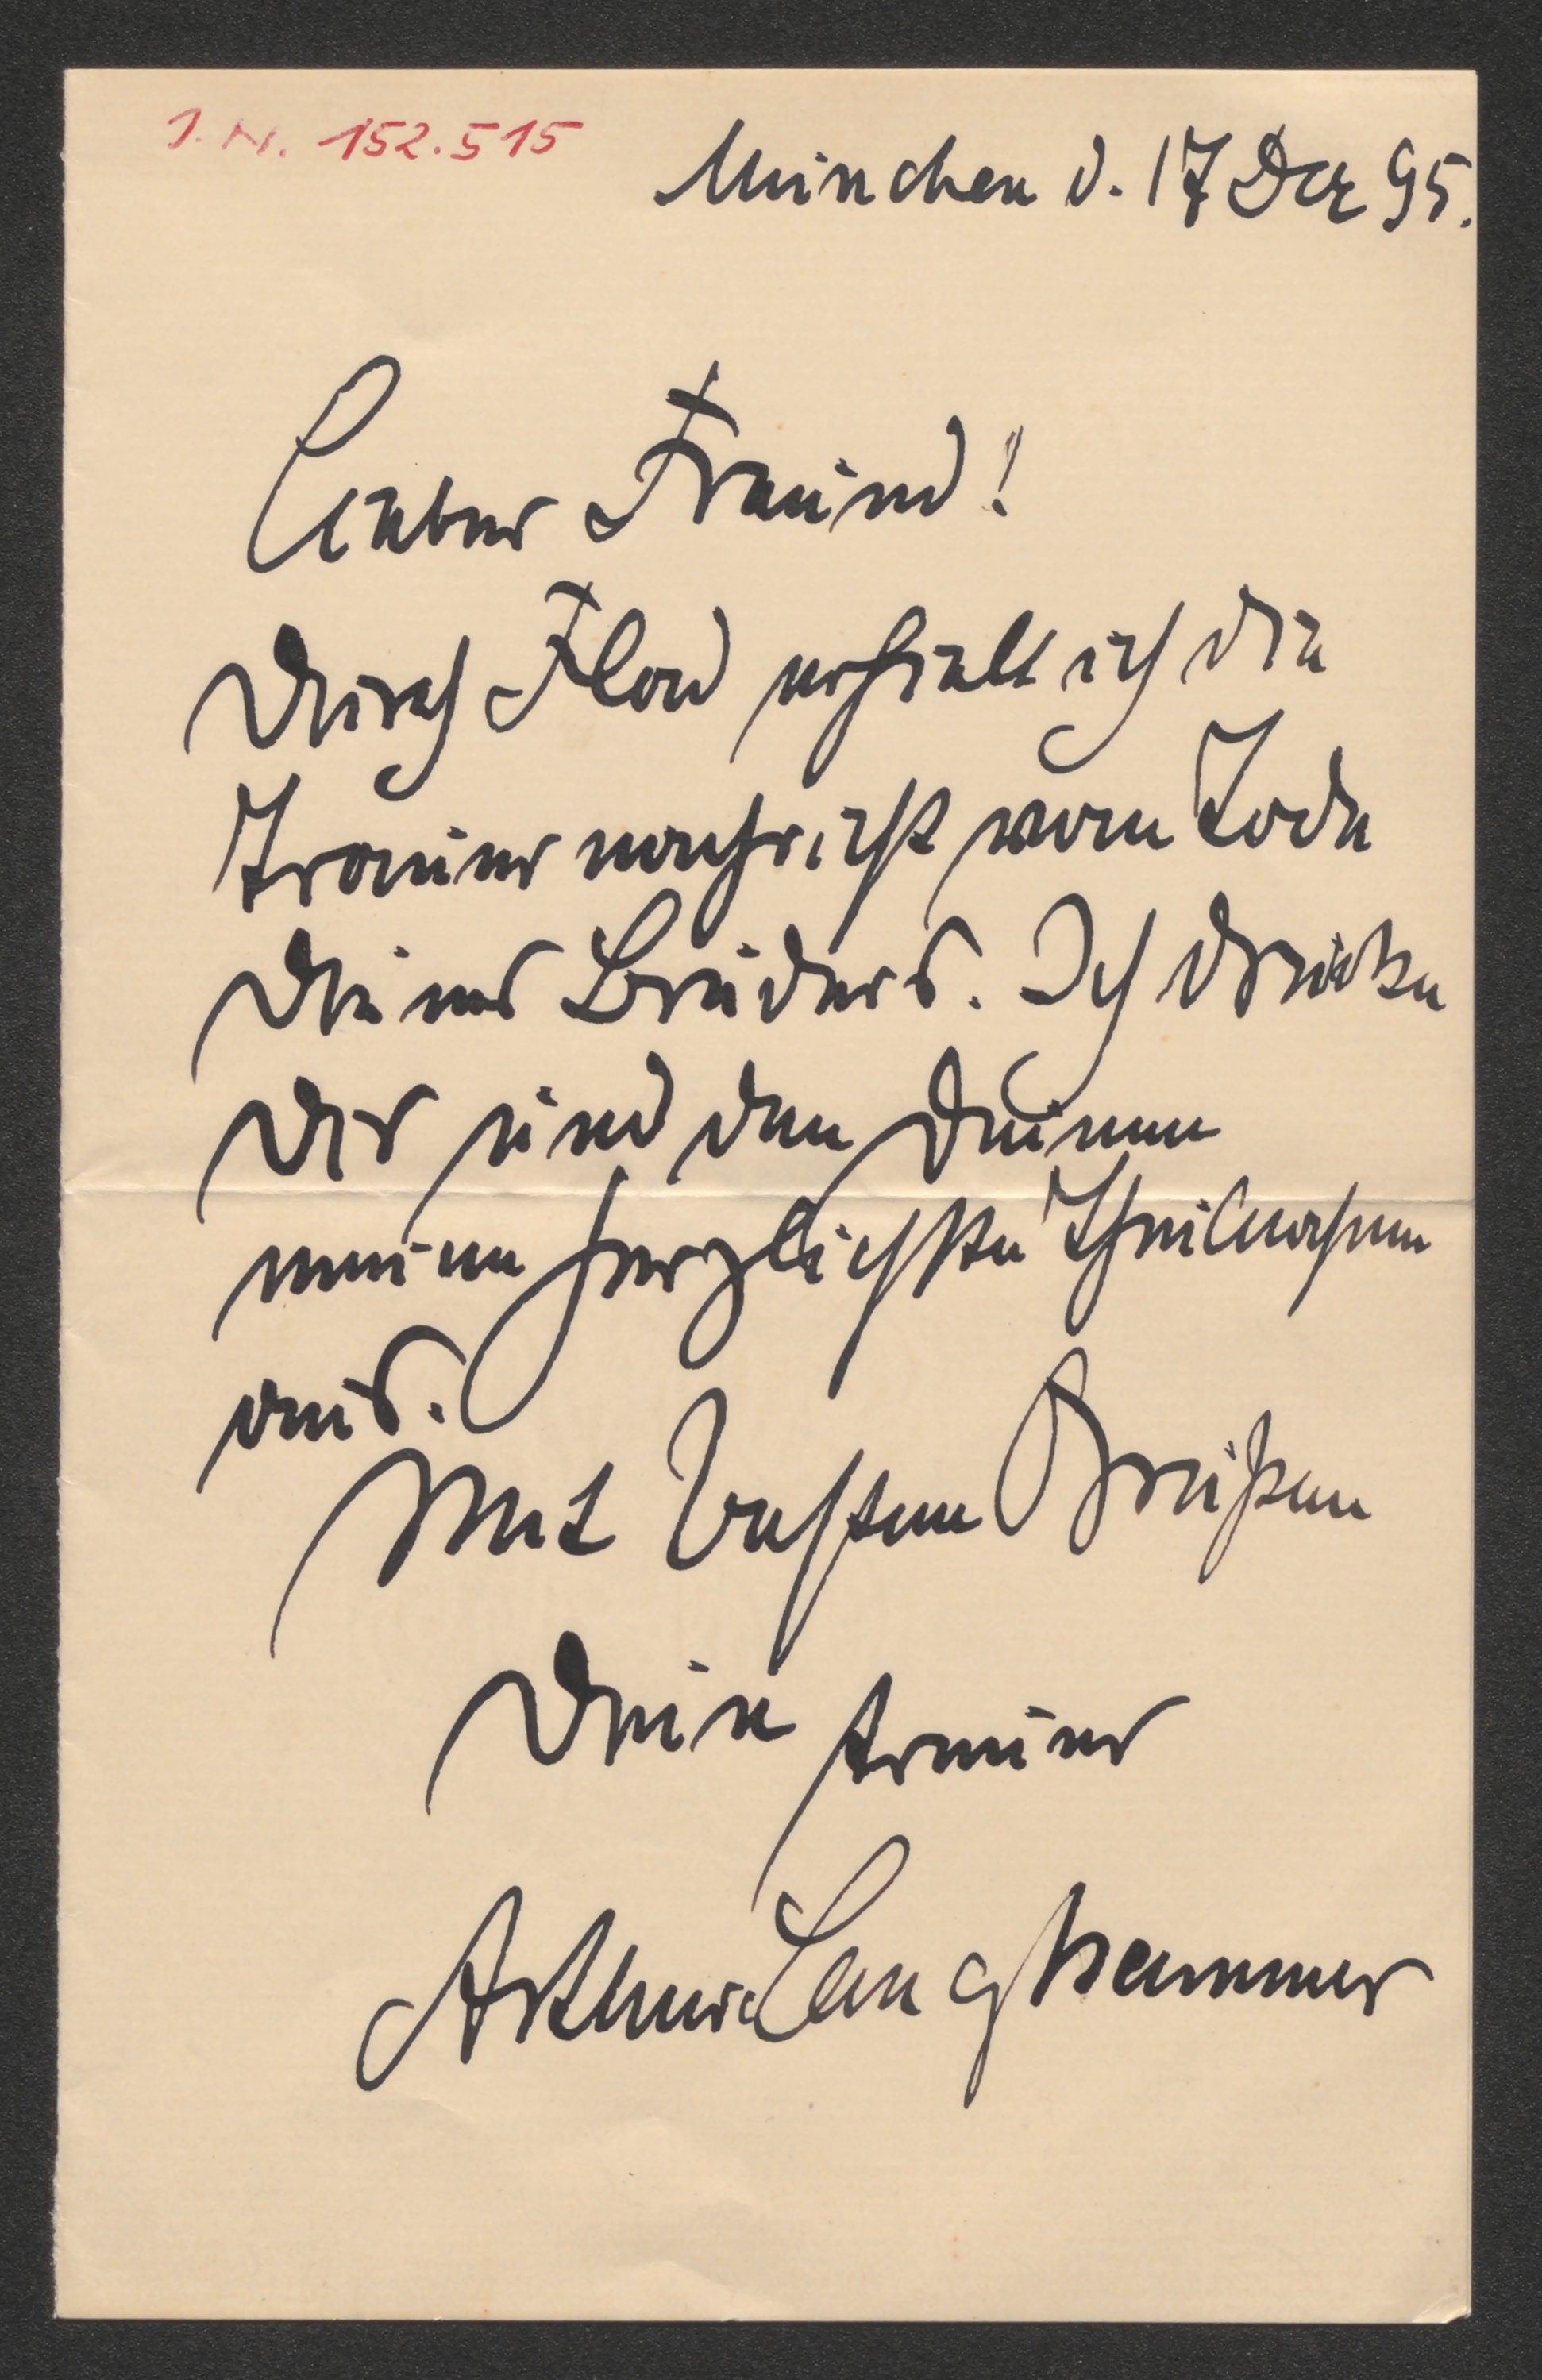 J. N. 152.515
München d. 17 Dez 95.
Lieber Freund!
Durch Flad erhielt ich die
Trauernachricht vom Tode
Deines Bruders. Ich drücke
Dir und den Deinen
meine herzlichste Theilnahme
aus.
Mit besten Grüßen
Dein treuer
Arthur Langhammer